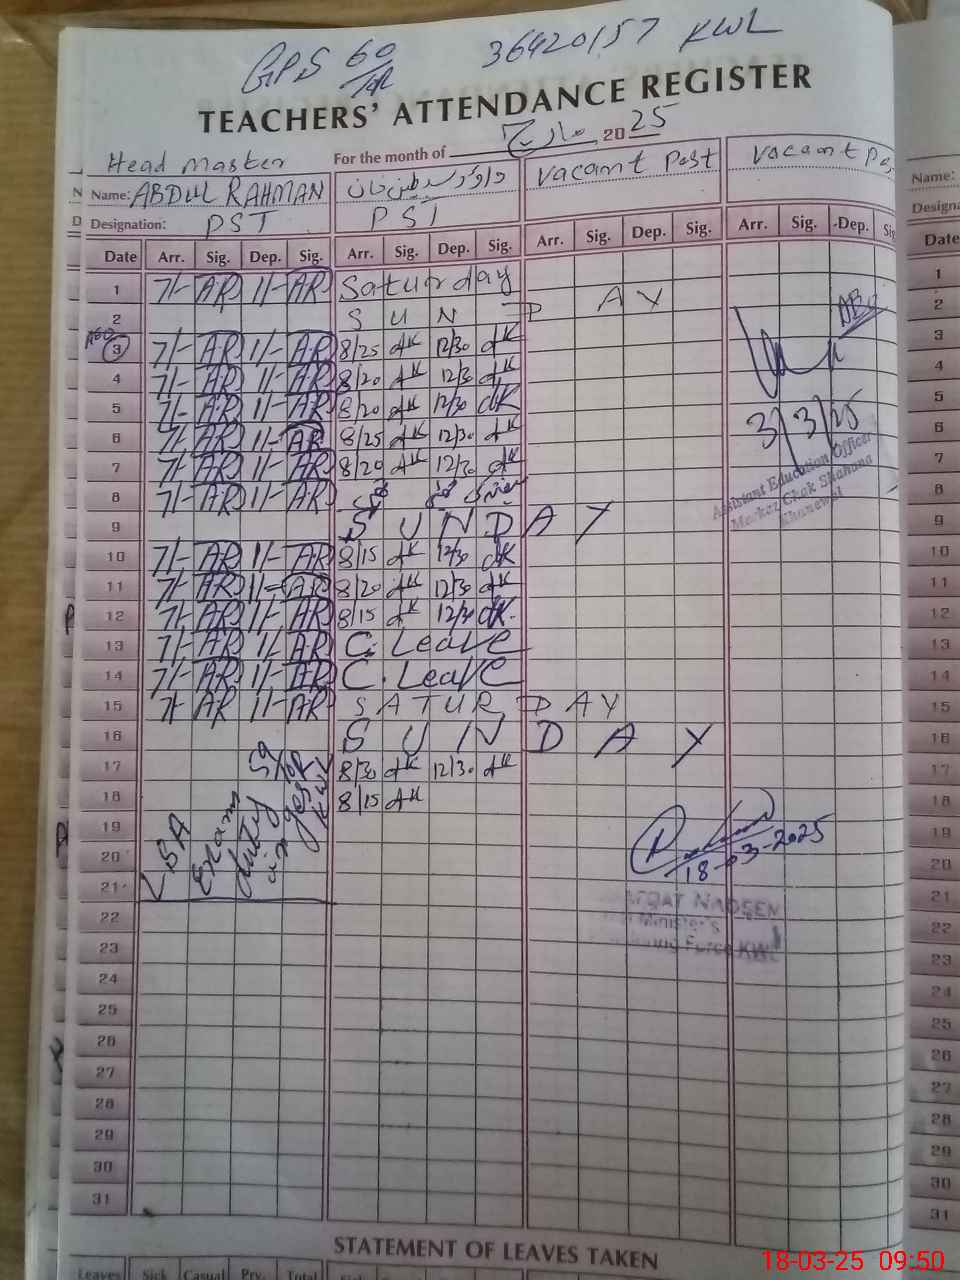 GPS 60/AR 36420157 KWL
TEACHERS' ATTENDANCE REGISTER
For the month of مارچ 2025
Head Master Vacant Post Vacant Po
Name: ABDUL RAHMAN
Designation: PST PST
Date Arr. Sig. Dep. Sig. Arr. Sig. Dep. Sig. Arr. Sig. Dep. Sig. Arr. Sig. Dep. Sig
1 7/- AR 11/- AR Saturday
2 SUNDAY
3 7/- AR 11/- AR 8/25 dK 12/30 dK
4 7/- AR 11/- AR 8/20 dK 12/30 dK
5 7/- AR 11/- AR 8/20 dK 12/30 dK
6 7/- AR 11/- AR 8/25 dK 12/30 dK
7 7/- AR 11/- AR 8/20 dK 12/30 dK
8 7/- AR 11/- AR
9 SUNDAY
10 7/- AR 11/- AR 8/15 dK 12/30 dK
11 7/- AR 11/- AR 8/20 dK 12/30 dK
12 7/- AR 11/- AR 8/15 dK 12/30 dK
13 7/- AR 11/- AR C. Leave
14 7/- AR 11/- AR C. Leave
15 7/- AR 11/- AR SATURDAY
16 SUNDAY
17 8/30 dK 12/30 dK
18 8/15 dK
19
20
21
LSA Exam duty
22
23
24
25
26
27
28
29
30
31
3/3/25
Assistant Education Officer
Markaz Chak Shahana
Khanewal
18-03-2025
AFQAT NADEEN
Minister's
Force KWL
STATEMENT OF LEAVES TAKEN
Leaves Sick Casual Prv. Total
Name:
Designa
Date
1
2
3
4
5
6
7
8
9
10
11
12
13
14
15
16
17
18
19
20
21
22
23
24
25
26
27
28
29
30
31
18-03-25 09:50